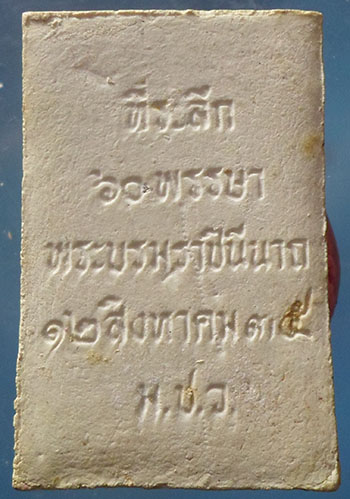 ที่ระลึก
๖๐ พรรษา
พระบรมราชินีนาถ
๑๒ สิงหาคม ๓๕
ม.ป.ว.